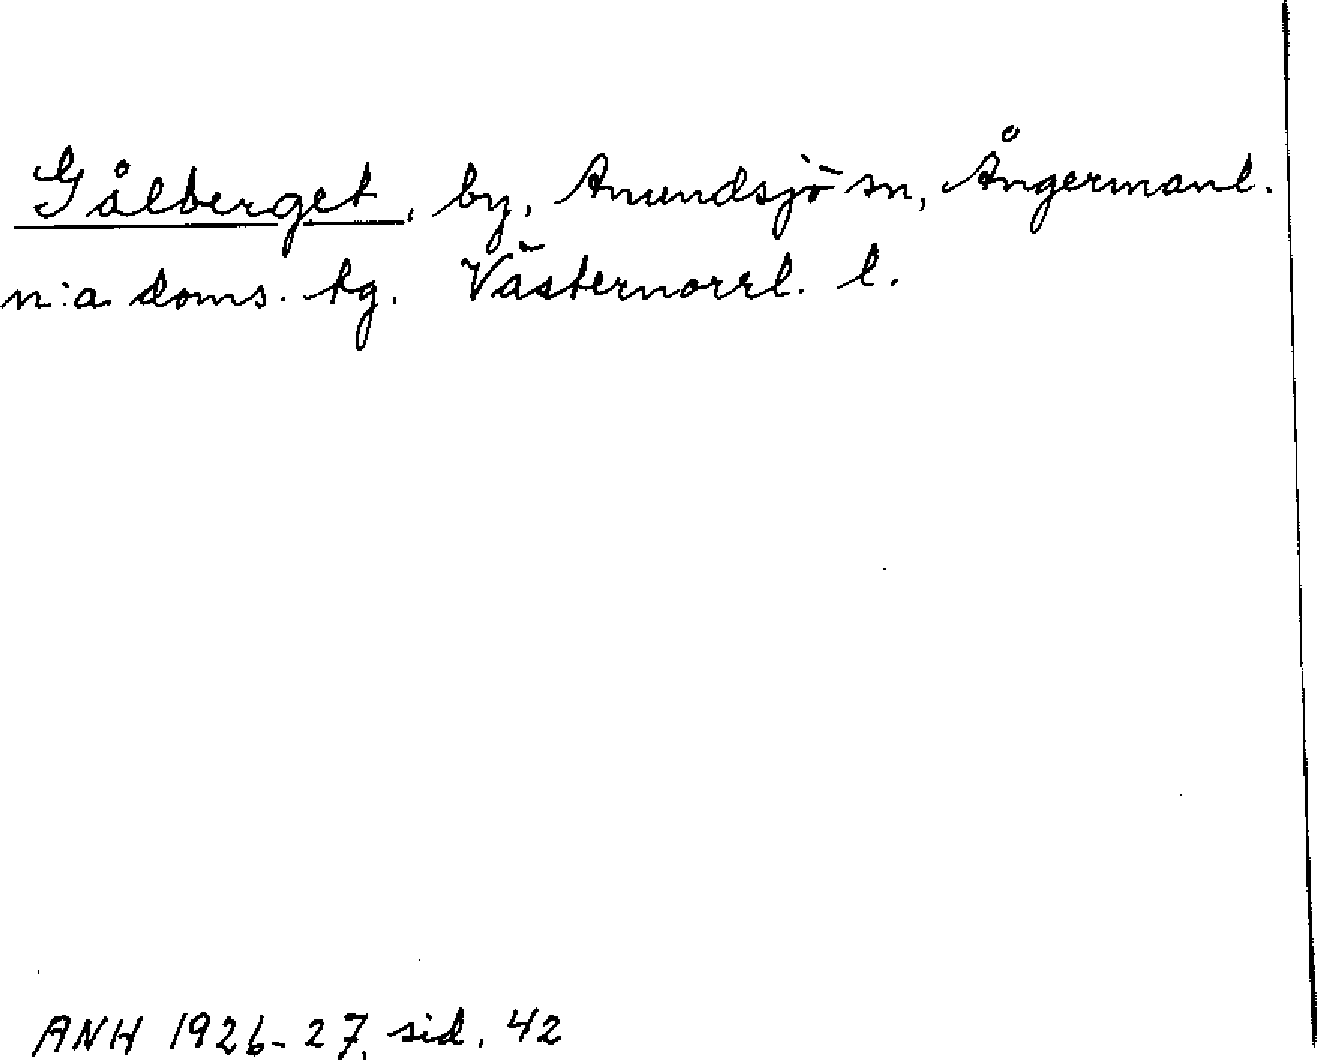 Gålberget, by, Anundsjö sn, Ångermanl.
n:a doms. tg. Västernorrl. l.
ANH 1926-27, sid. 42